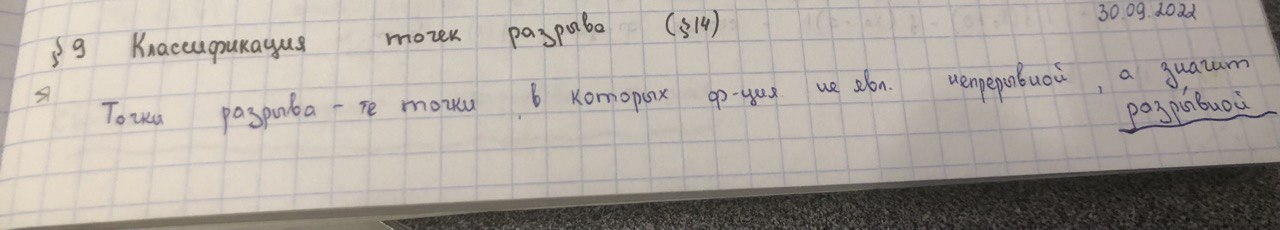 30.09.2022
§9 Классификация точек разрыва (§14)
Точки разрыва - те точки, в которых ф-ция не явл. непрерывной, а значит
разрывной